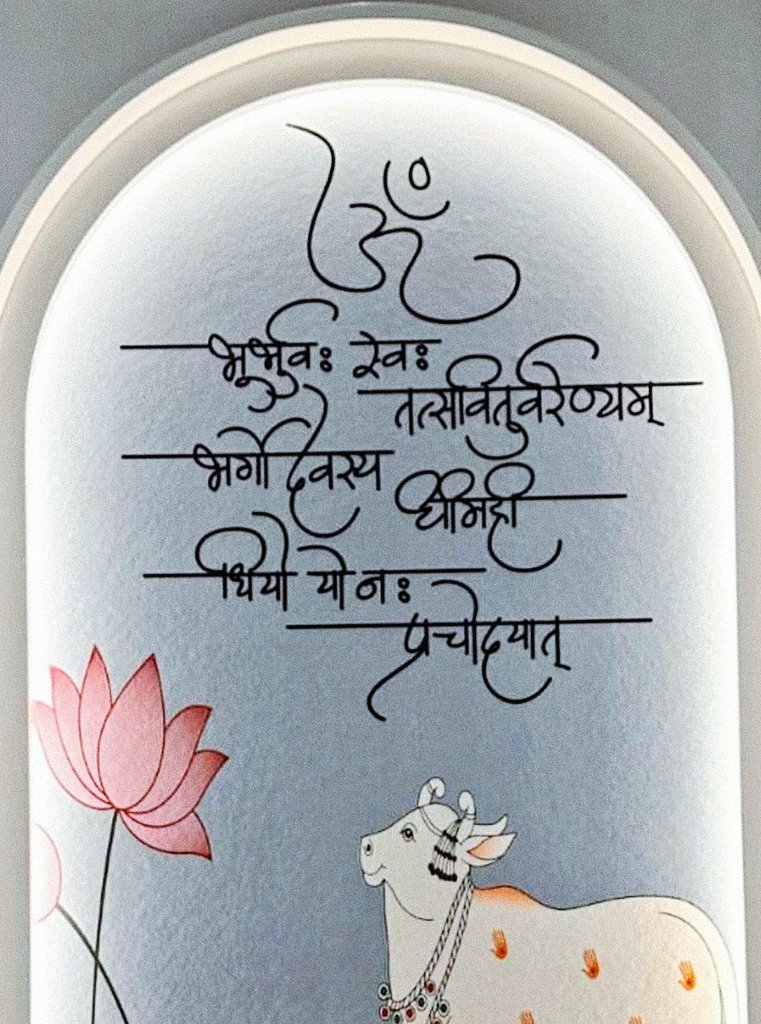 ॐ
भूर्भुवः स्वः
तत्सवितुर्वरेण्यम्
भर्गो देवस्य
धीमही
धियो यो नः
प्रचोदयात्